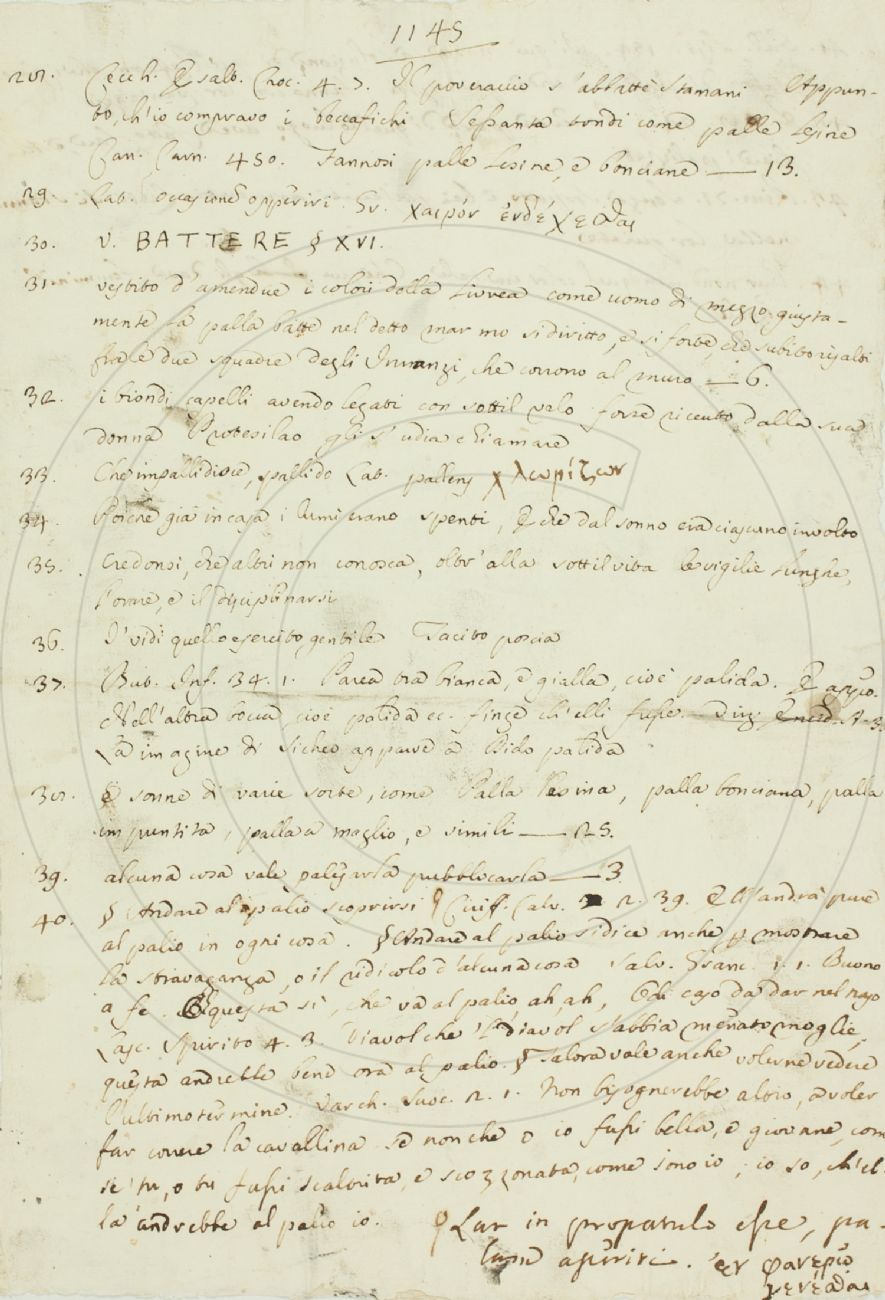 1145
28. Cecch. Esalt. Croc. 4. 7. Il poveraccio s'abbattè stamani Appun-
to, ch'io compravo i beccafichi Sessanta tondi come palle lesine
Can. Carn. 450. Fannosi palle lesine, e bonciane — 13.
29. Lat. occasione opperiri. Gr. χαιρόν ἐνδέχεσθαι
30. V. BATTERE § XVI.
31. vestito d'amendue i colori della livrea come uomo di mezzo giusta-
mente la palla batte nel detto marmo si diritto, e si forte, che subito risalti
fra le due squadre degli Innanzi, che corrono al muro — 6.
32. i biondi capelli avendo legati con sottil velo forse ricevuto dalla sua
donna Protesilao gli s'udia chiamare
33. Che impallidisce, pallido Lat. pallens χλωρίζων
34. Poichè già in casa i lumi erano spenti, E che dal sonno era ciascuno involto
35. Credonsi, che altri non conosca, oltr'alla sottil vita le vigilie lunghe,
l'orare, e il disciplinarsi
36. I' vidi quello esercito gentile Tacito poscia
37. But. Inf. 34. 1. Parea tra bianca, e gialla, cioè palida. E appo.
Nell'altra bocca, cioè palida ec. finge ch'elli fusse.
La imagine di Sicheo apparve a Dido palida
38. E sonne di varie sorte, come Palla lesina, palla bonciana, palla
impuntita, palla a maglio, e simili — 25.
39. alcuna cosa vale palesarla pubblicarla — 3
40. § Andare al palio scoprirsi § Ciriff. Calv. 2. 39. E s'andrà pure
al palio in ogni cosa. § Andare al palio si dice anche p mostrare
la stravaganza, o il ridicolo d'alcuna cosa Salv. Granc. 1. 1. Buono
a fe. E questa sì, che va al palio ah, ah, Odi caso da dar nel naso
Lasc. Spirito 4. 3. Diavol che 'l Diavol s'abbia menato moglie,
questa andrebbe bene ora al palio. § Talora vale anche volerne vedere
l'ultimo termine. Varch. Suoc. 2. 1. Non bisognerebbe altro, a voler
far correre la cavallina se non che o io fussi bella, e giovane, com
se' tu, o tu fussi scaltrita, e scozzonata, come sono io; io so, ch'el-
la andrebbe al palio io. § Lat in propatulo esse, pa-
lam aperiri. ἐν φανερῷ
γενέσθαι